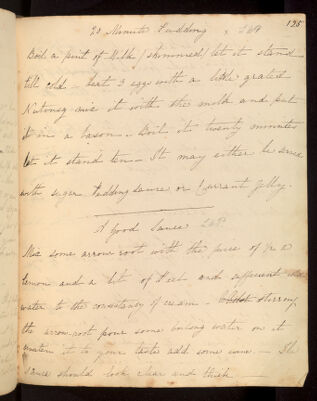 195
20 Minute Pudding
Boil a pint of Milk (skimmed) let it stand
till cold - beat 3 eggs with a little grated
Nutmeg mix it with the milk and put
it in a bason - Boil it twenty minutes
let it stand ten - It may either be
with sugar Pudding sauce or Currant Jelly.
A Good Sauce
Mix some arrow root with the juice of ½ a
lemon and a bit of Peel and sufficient
water to the consistency of cream - stirring
the arrow-root pour some boiling water on it
sweeten it to your taste add some -
sauce should look clear and thick